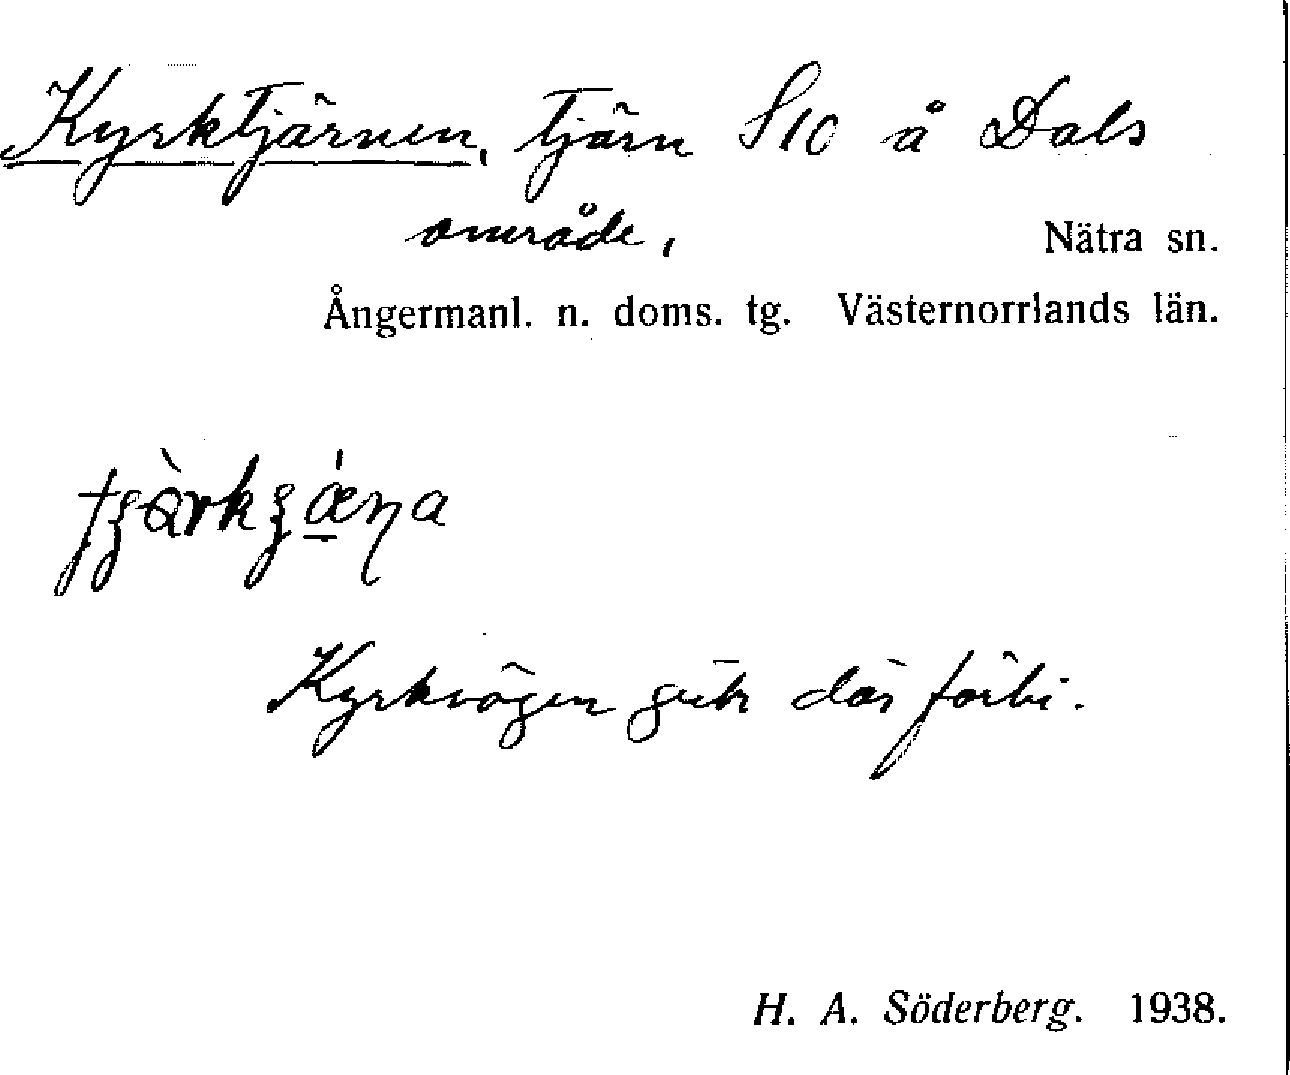 Kyrktjärnen, tjärn S10 å Dals
område,
Nätra sn.
Ångermanl. n. doms. tg. Västernorrlands län.
Kyrkvägen gick där förbi.
H. A. Söderberg. 1938.